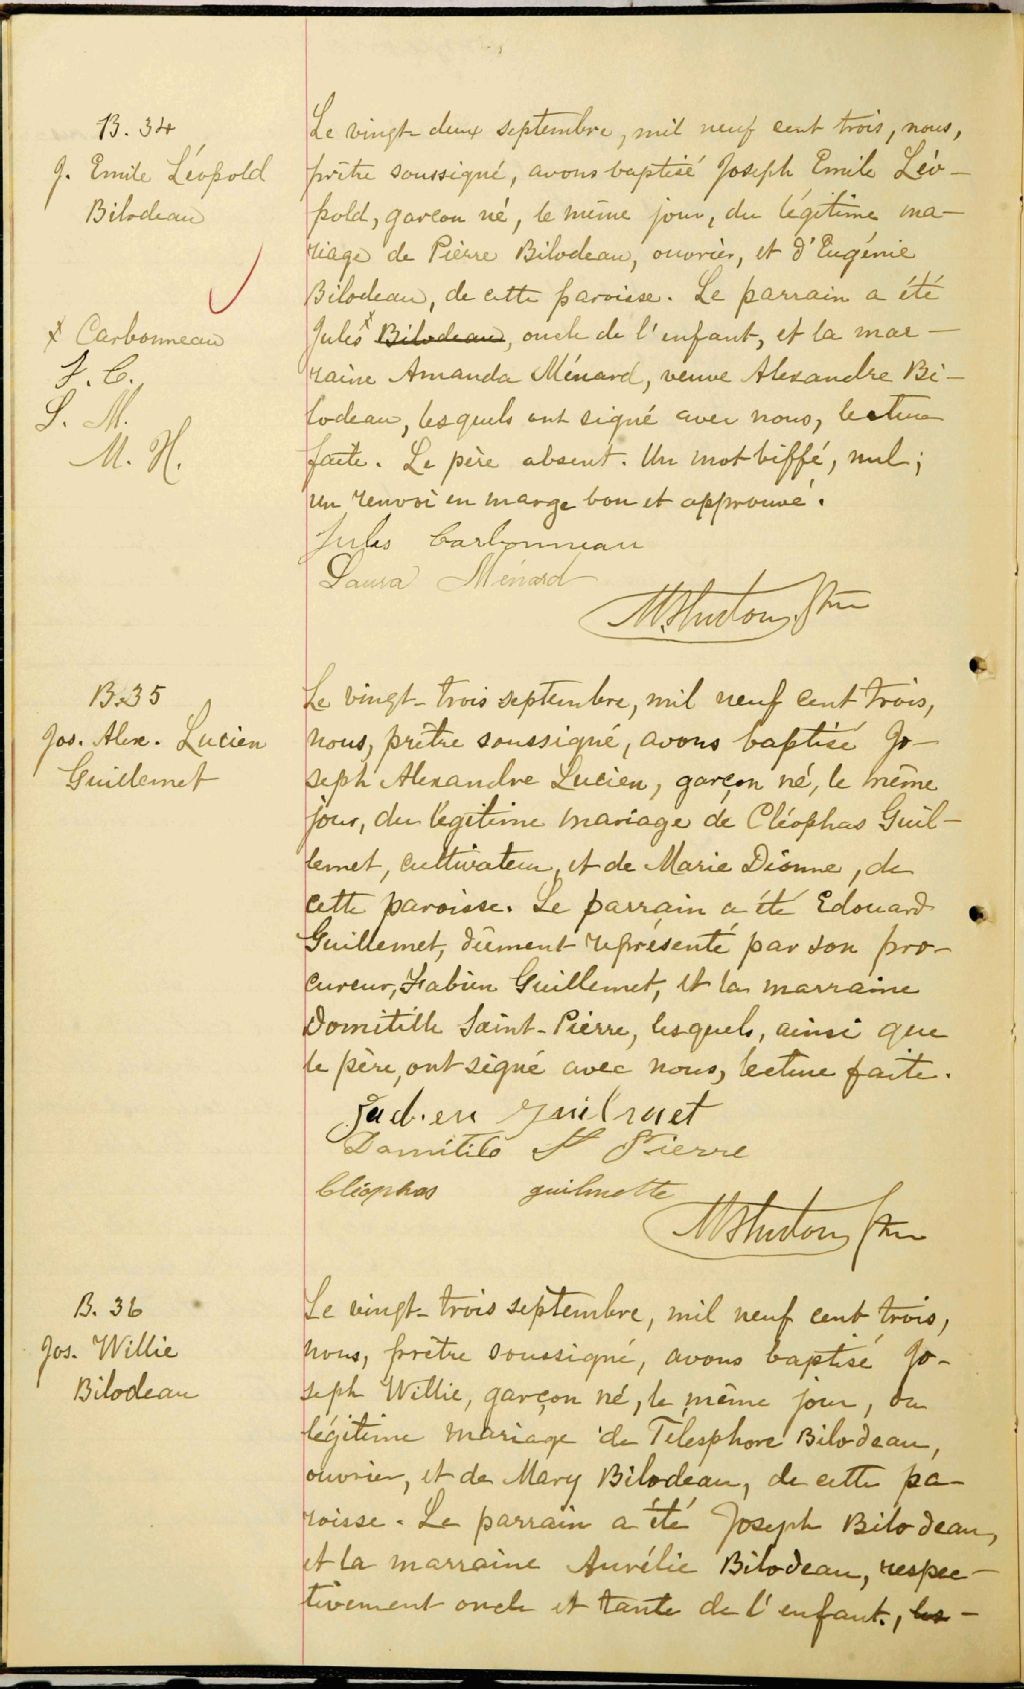 B. 34
J. Emile Léopold
Bilodeau
x Carbonneau
J. C.
L. M.
M. H.
Le vingt-deux septembre, mil neuf cent trois, nous,
prêtre soussigné, avons baptisé Joseph Emile Léo-
pold, garçon né, le même jour, du légitime ma-
riage de Pierre Bilodeau, ouvrier, et d'Eugénie
Bilodeau, de cette paroisse. Le parrain a été
Jules x Bilodeau, oncle de l'enfant, et la mar-
raine Amanda Ménard, veuve Alexandre Bi-
lodeau, lesquels ont signé avec nous, lecture
faite. Le père absent. Un mot biffé, nul;
un renvoi en marge bon et approuvé.
Jules Carbonneau
Laura Ménard
M. Hudon, Ptre
B. 35
Jos. Alex. Lucien
Guillemet
Le vingt-trois septembre, mil neuf cent trois,
nous, prêtre soussigné, avons baptisé Jo-
seph Alexandre Lucien, garçon né, le même
jour, du légitime mariage de Cléophas Guil-
lemet, cultivateur, et de Marie Dionne, de
cette paroisse. Le parrain a été Edouard
Guillemet, dûment représenté par son pro-
cureur, Fabien Guillemet, et la marraine
Domitille Saint-Pierre, lesquels, ainsi que
le père, ont signé avec nous, lecture faite.
Domitile St Pierre
Cléophas guilmette
M. Hudon Ptre
B. 36
Jos. Willie
Bilodeau
Le vingt-trois septembre, mil neuf cent trois,
nous, prêtre soussigné, avons baptisé Jo-
seph Willie, garçon né, le même jour, du
légitime mariage de Télesphore Bilodeau,
ouvrier, et de Mary Bilodeau, de cette pa-
roisse. Le parrain a été Joseph Bilodeau,
et la marraine Aurélie Bilodeau, respec-
tivement oncle et tante de l'enfant, les-